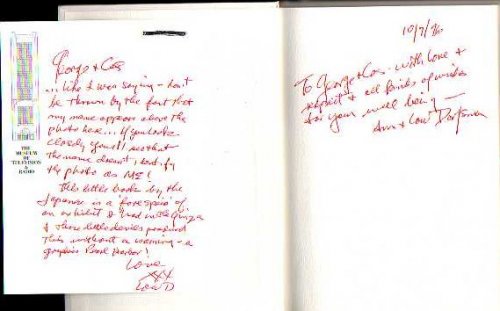 THE
MUSEUM
OF
TELEVISION
& RADIO
George & Cas
... Like I was saying - don't
be thrown by the fact that
my name appears above the
photo here... If you look
closely you'll see that
the name doesn't identify
the photo as ME!
This little book by the
Japanese is a
an exhibit I had
& those little devils produced
this without a warning - a
graphic Pearl Harbor!
Love
XXX
Lou D
10/7/86
To George & Cas - with love &
respect & all kinds of wishes
for your well being -
Ann & Lou Dorfsman